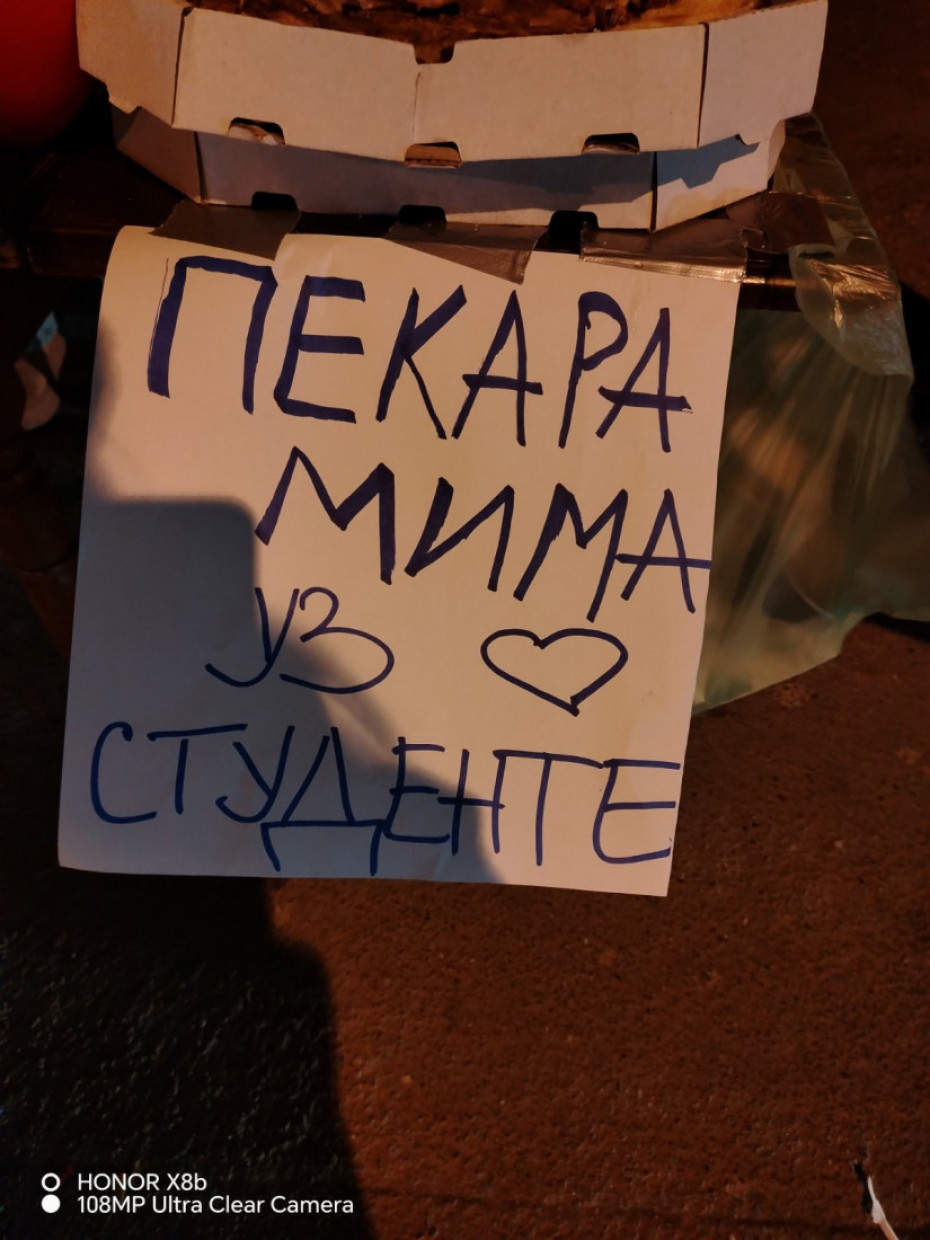 ПЕКАРА
МИМА
УЗ ♡
СТУДЕНТЕ
HONOR X8b
108MP Ultra Clear Camera